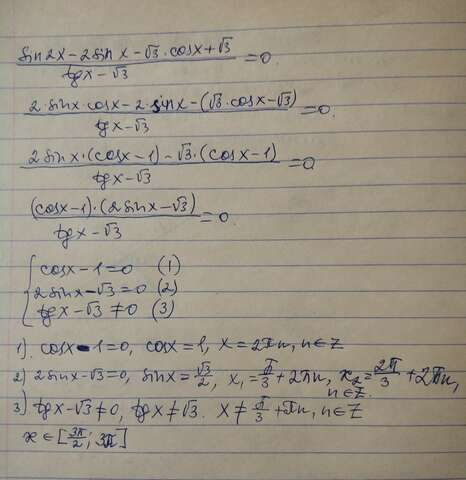 (sin2x-2sinx-√3·cosx+√3)/(tgx-√3)=0.
(2·sinx·cosx-2·sinx-(√3·cosx-√3))/(tgx-√3)=0.
(2sinx·(cosx-1)-√3·(cosx-1))/(tgx-√3)=0
((cosx-1)·(2sinx-√3))/(tgx-√3)=0.
{cosx-1=0 (1)
2sinx-√3=0 (2)
tgx-√3≠0 (3)
1). cosx-1=0, cosx=1, x=2πn, n∈Z
2) 2sinx-√3=0, sinx=√3/2, x₁=π/3+2πn, x₂=2π/3+2πn,
n∈Z.
3) tgx-√3≠0, tgx≠√3. x≠π/3+πn, n∈Z
x∈[3π/2; 3π]